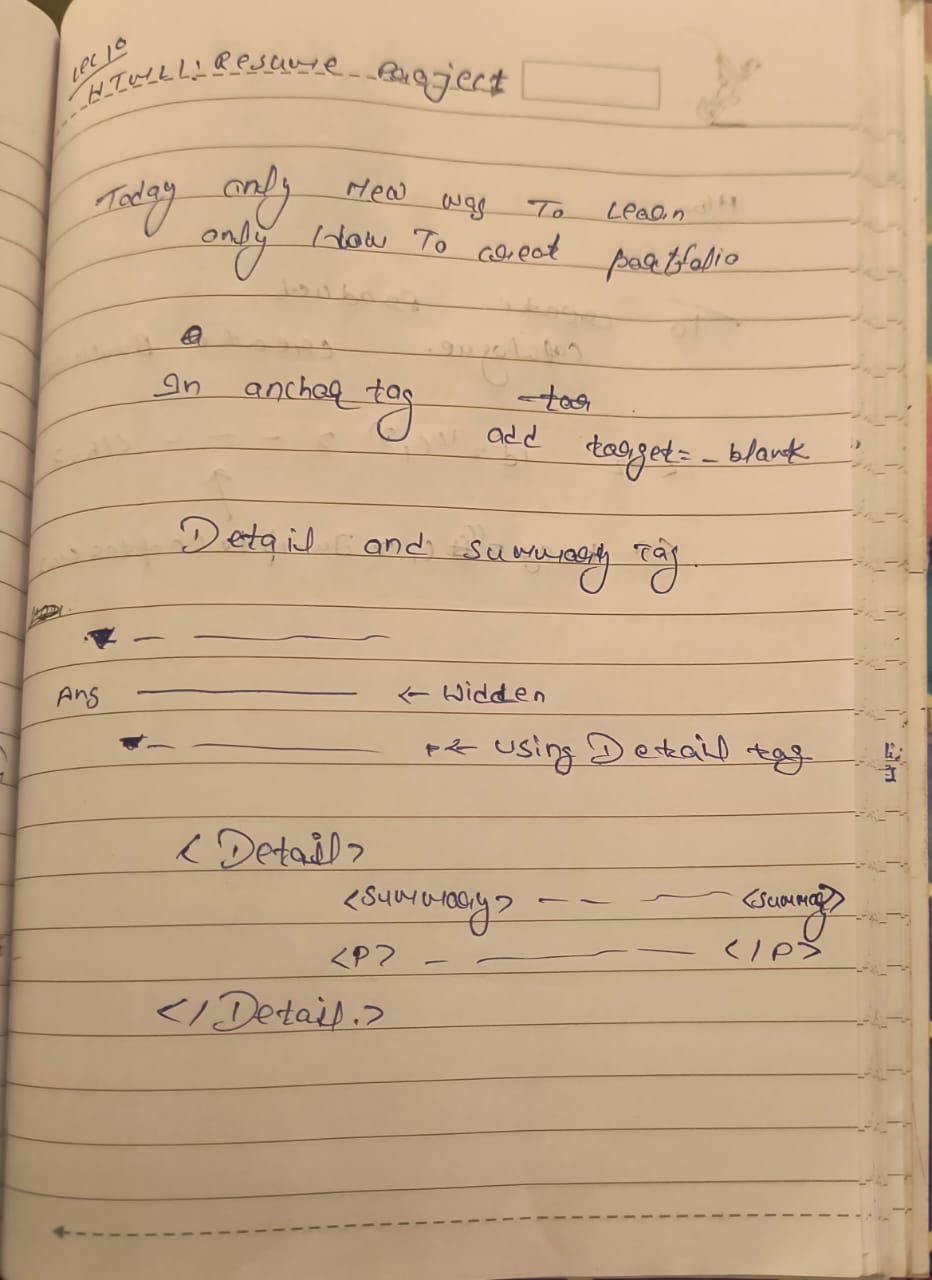 Lec 10
HTML L: Resume Project
Today only New was To Learn
only How To creat portfolio
In anchor tag
add target= _ blank
Detail and summary Tag
Ans ← Hidden
← using Detail tag
<Detail>
<summary> <summary>
<P> </P>
</Detail.>